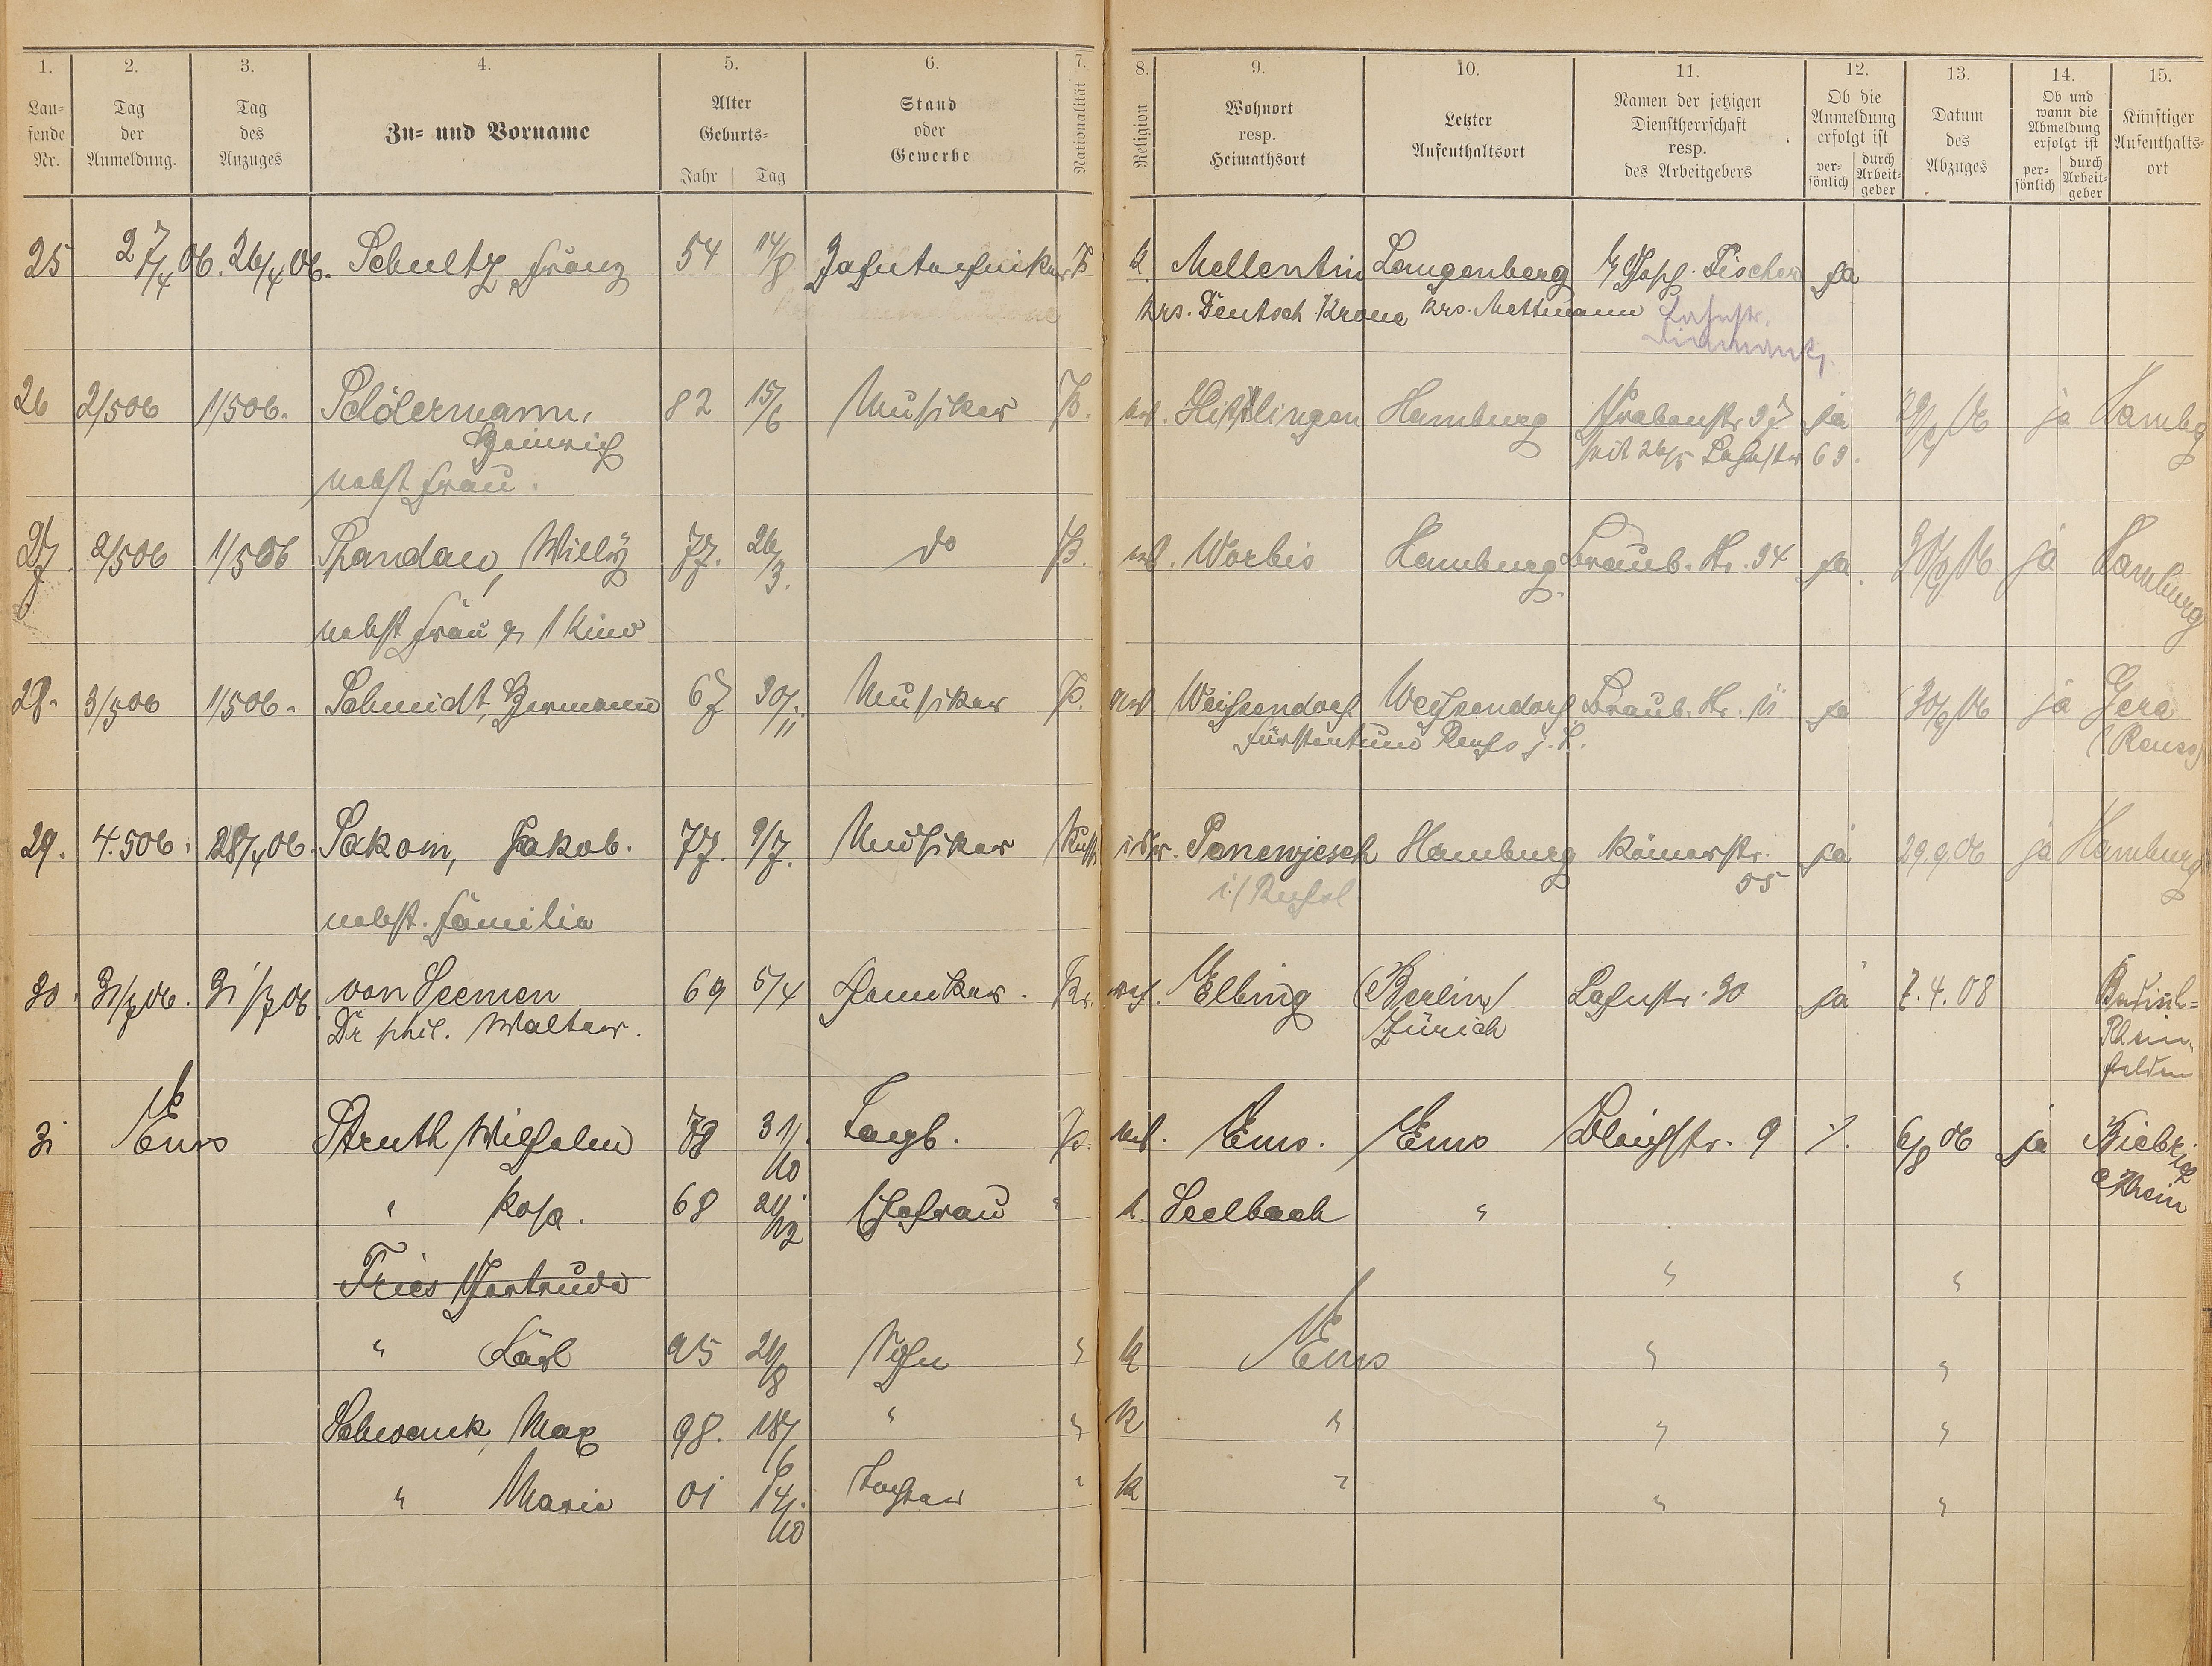 1. 2. 3. 4. 5. 6. 7. 8. 9. 10. 11. 12. 13. 14. 15.
Lau-
fende
Nr.
Tag
der
Anmeldung.
Tag
des
Anzuges
Zu- und Vorname
Alter
Geburts-
Jahr Tag
Stand
oder
Gewerbe
Nationalität
Religion
Wohnort
resp.
Heimathsort
Letzter
Aufenthaltsort
Namen der jetzigen
Dienstherrschaft
resp.
des Arbeitgebers
Ob die
Anmeldung
erfolgt ist
per-
sönlich
durch
Arbeit-
geber
Datum
des
Abzuges
Ob und
wann die
Abmeldung
erfolgt ist
per-
sönlich
durch
Arbeit-
geber
Künftiger
Aufenthalts-
ort
25 27/4 06. 26/4 06. Schultz, Franz 54 14/8 Zahntechniker P k. Mellentin Langenberg Fischer ja
Krs. Deutsch Krone Krs. Mettmann
Lahnstr.
26 2/5 06 1/5 06. Schöermann, 82 15/6 Musiker P. Hamburg Grabenstr. ja 06 ja Hambg
Heinrich
seit 26/5 Lahnstr 69.
nebst Frau.
27. 2/5 06 1/5 06 Spandau, Willy 77. 26/3. do P. ev. Worbis Hamburg. Braub. Str. 34 ja. 30/9 06 ja Hamburg
nebst Frau & 1 Kind
28. 3/5 06 1/5 06. Schmidt, Hermann 67 30/11 Musiker P. ev. Weißendorf Weißendorf Braub. Str. 11 ja 30/9 06 ja Gera
Fürstentum Reuß j. L. (Reuss)
29. 4.5 06. 28/4 06. Sakom, Jakob. 77. 9/7. Musiker Russ isr. Ponewjesch Hamburg Römerstr. ja 29.9.06 ja Hamburg
55
i/ Rußl
nebst. Familie
30. 31/7 06. 31/7 06 von Seemen 69 5/4 Chemiker. Pr. ref. Elbing (Berlin) Lahnstr. 30 ja 7.4.08 Badisch-
Dr phil. Walter. Zürich Rhein-
felden
31 Ems Struth Wilhelm 78 31/10 Tagl. P. ev. Ems. Ems Bleichstr. 9 %. 6/8 06 ja Biebrich
a Rhein
" Rosa. 68 21/12 Ehefrau " k. Seelbach "
Fries Gertrude " "
" Karl 95 21/8 Sohn " k Ems " "
Schwenk, Max 98. 18/6 " " k " " "
" Maria 01 14/10 Tochter " k " " "